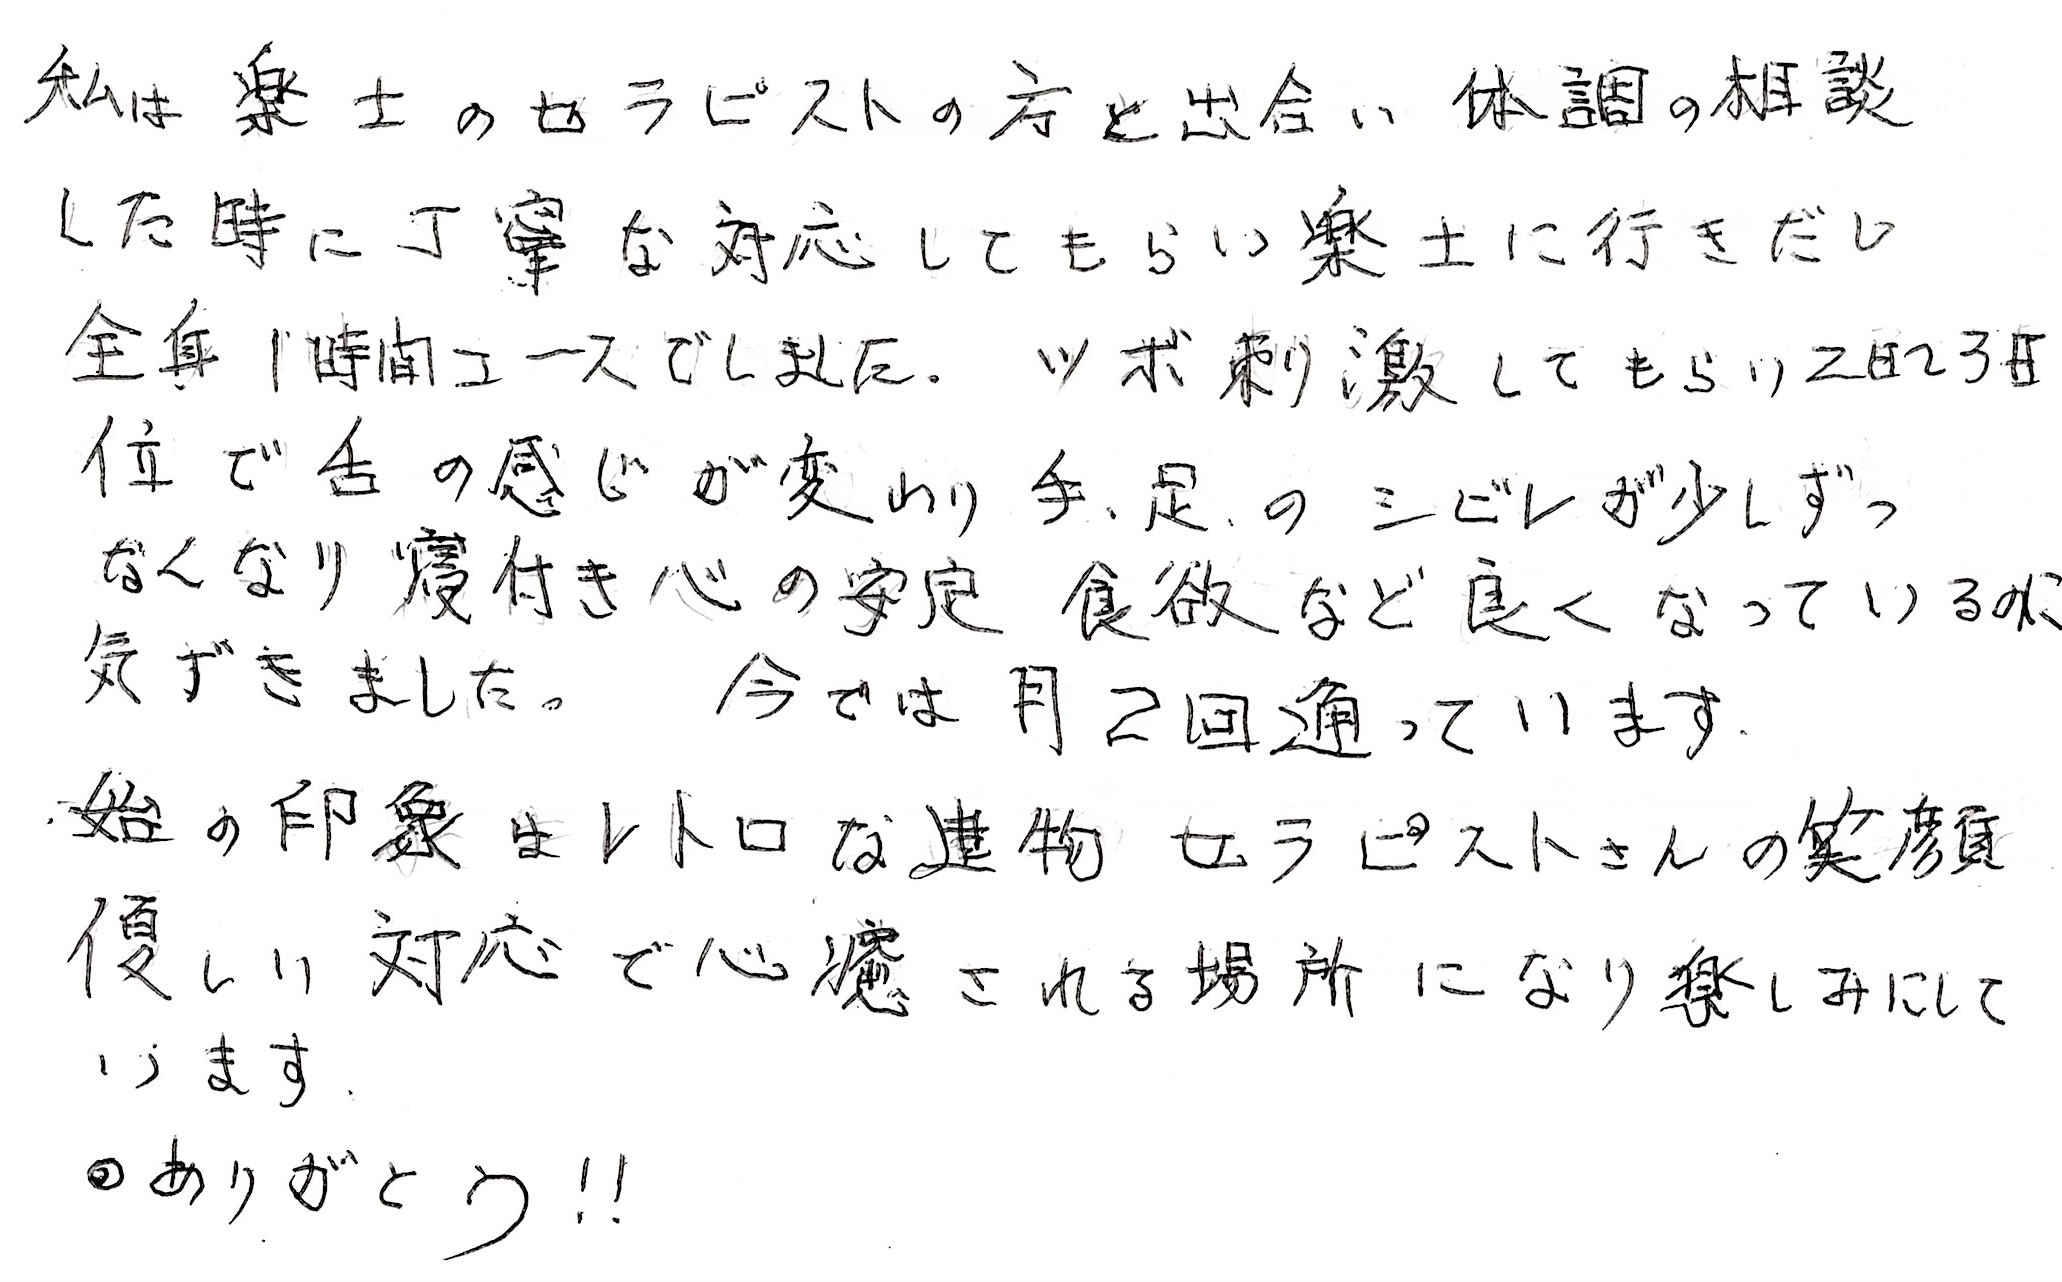 私は楽士のセラピストの方と出合い体調の相談
した時に丁寧な対応してもらい楽士に行きだし
全身1時間コースでしました。ツボ刺激してもらい2日3日
位で舌の感じが変わり手、足、のシビレが少しずつ
なくなり寝付き心の安定 食欲など良くなっているのに
気ずきました。 今では月2回通っています。
始の印象はレトロな建物 セラピストさんの笑顔
優しい対応で心癒される場所になり楽しみにして
います。
◎ありがとう!!